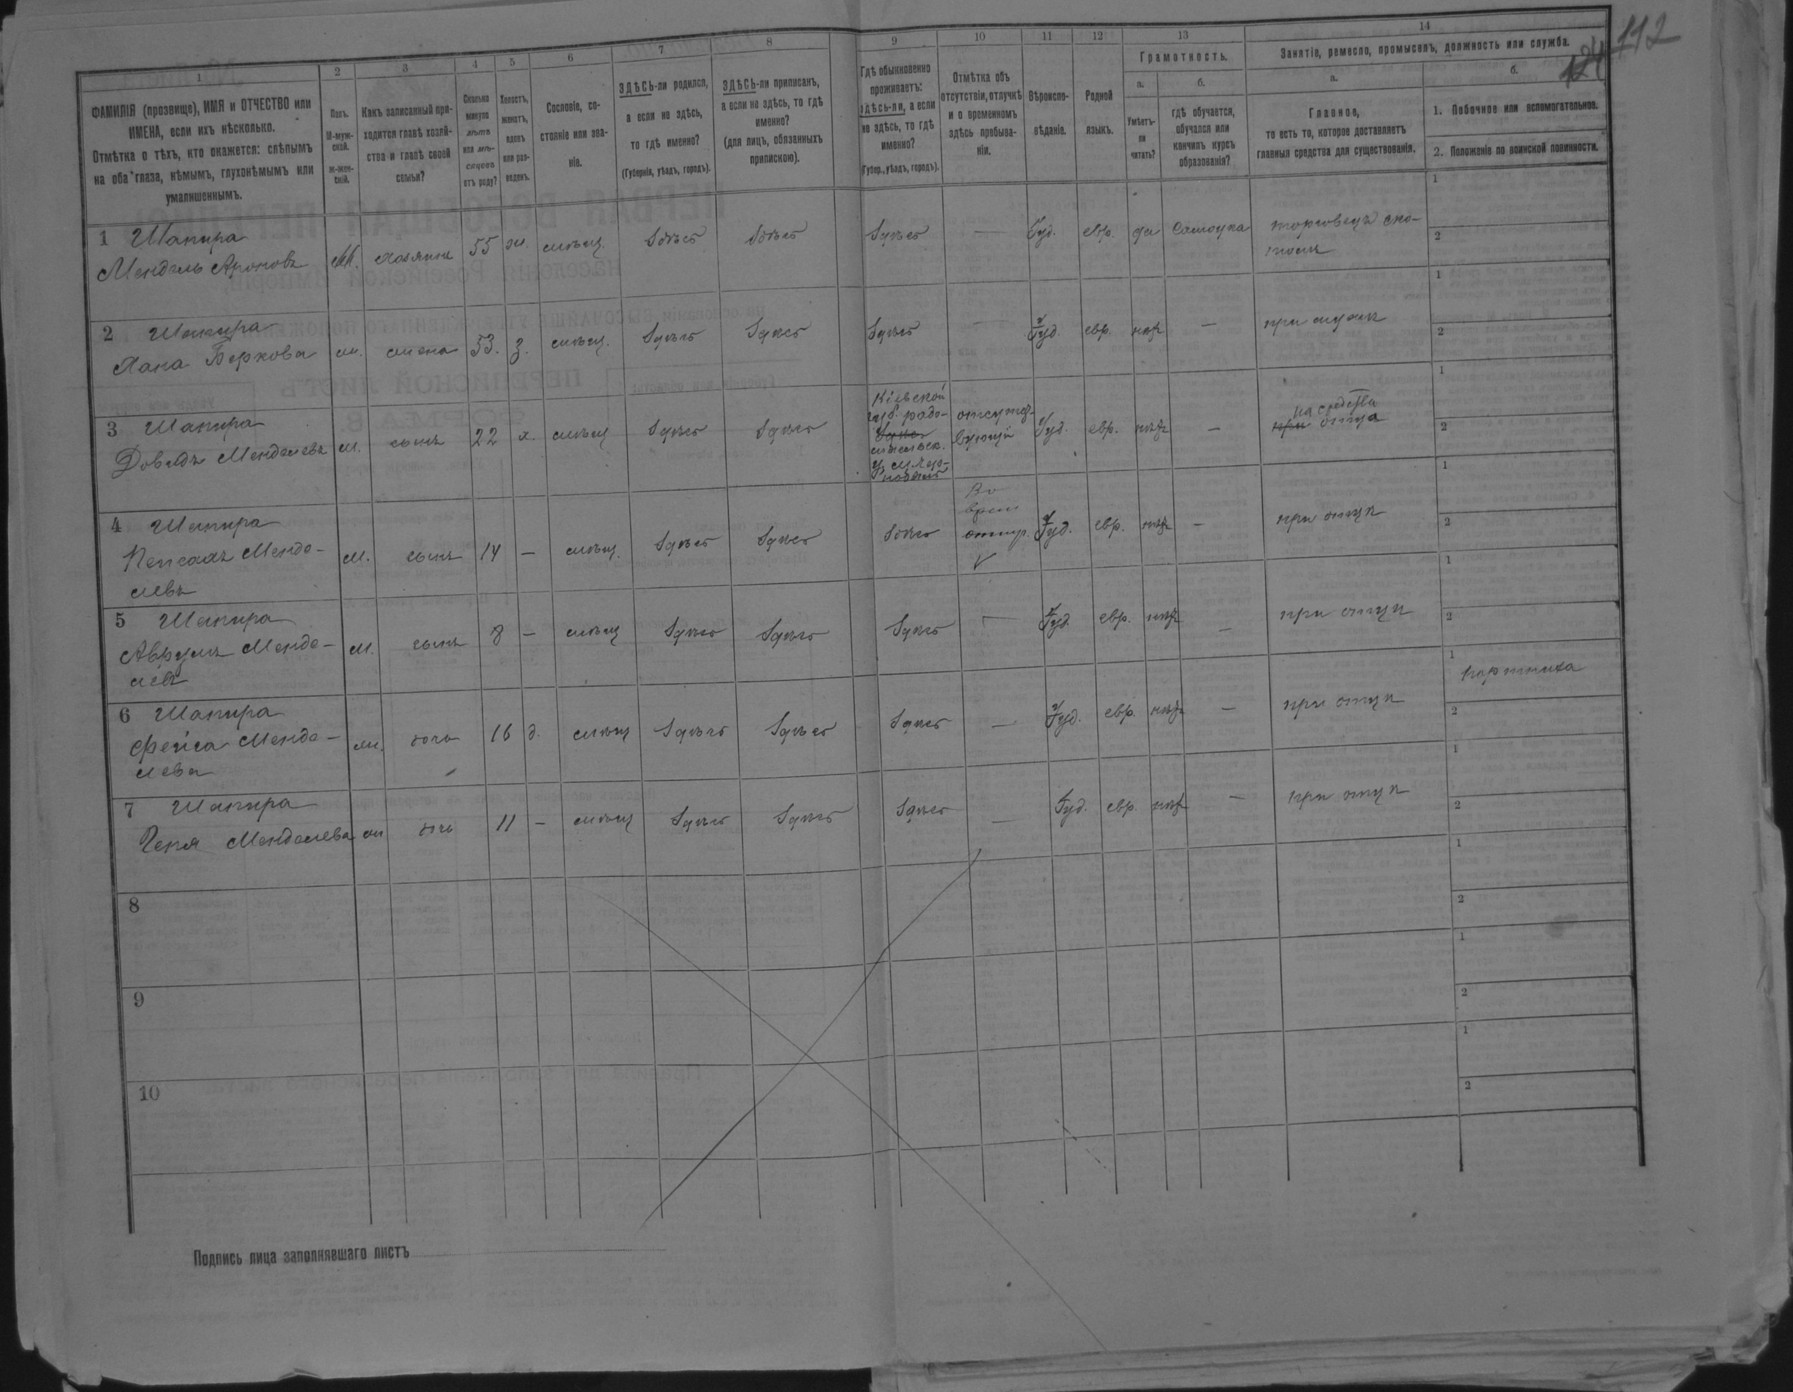 112
124
1
2
3
4
5
6
7
8
9
10
11
12
13
14
ФАМИЛІЯ (прозвище), ИМЯ и ОТЧЕСТВО или ИМЕНА, если ихъ нѣсколько.
Отмѣтка о тѣхъ, кто окажется: слѣпымъ на оба глаза, нѣмымъ, глухонѣмымъ или умалишеннымъ.
Полъ.
М-муж-
ской.
Ж-жен-
скій.
Какъ записанный при-
ходится главѣ хозяй-
ства и главѣ своей
семьи?
Сколько
минуло
лѣтъ
или мѣ-
сяцевъ
отъ роду?
Холостъ,
женатъ,
вдовъ
или раз-
веденъ.
Сословіе, со-
стояніе или зва-
ніе.
ЗДѢСЬ-ли родился,
а если не здѣсь,
то гдѣ именно?
(Губернія, уѣздъ, городъ).
ЗДѢСЬ-ли приписанъ,
а если не здѣсь, то гдѣ
именно?
(для лицъ, обязанныхъ
припискою).
Гдѣ обыкновенно
проживаетъ:
здѣсь-ли, а если
не здѣсь, то гдѣ
именно?
(Губер., уѣздъ, городъ).
Отмѣтка объ
отсутствіи, отлучкѣ
и о временномъ
здѣсь пребыва-
ніи.
Вѣроиспо-
вѣданіе.
Родной
языкъ.
Грамотность.
а.
б.
Умѣетъ-
ли
читать?
гдѣ обучается,
обучался или
кончилъ курсъ
образованія?
Занятіе, ремесло, промыселъ, должность или служба.
а.
б.
Главное,
то есть то, которое доставляетъ
главныя средства для существованія.
1. Побочное или вспомогательное.
2. Положеніе по воинской повинности.
1 Шапира
Мендель Ароновъ М. хозяинъ 55 ж. мѣщ. здѣсь здѣсь здѣсь — Іуд. евр. да самоучка торговецъ ско-
томъ
1
2
2 Шапира
Хана Беркова ж. жена 53. з. мѣщ. здѣсь здѣсь здѣсь — Іуд. евр. нѣтъ — при мужѣ
1
2
3 Шапира
Довидъ Менделевъ М. сынъ 22 х. мѣщ здѣсь здѣсь
Кіевской
губ. радо-
здѣсь
мысльск.
у.
отсутст-
вующій
Іуд. евр. нѣтъ —
на средства
при отца
1
2
4 Шапира
Пейсахъ Менде-
левъ М. сынъ 14 — мѣщ. здѣсь здѣсь здѣсь
Во
врем
отлуч.
Іуд. евр. нѣтъ — при отцѣ
1
2
5 Шапира
Аврумъ Менде-
левъ М. сынъ 8 — мѣщ здѣсь здѣсь здѣсь — Іуд. евр. нѣтъ — при отцѣ
1
2
6 Шапира
Фейга Менде-
лева ж. дочь 16 д. мѣщ здѣсь здѣсь здѣсь — Іуд. евр. нѣтъ — при отцѣ
1 портниха
2
7 Шапира
Геня Менделева ж дочь 11 — мѣщ здѣсь здѣсь здѣсь — Іуд. евр. нѣтъ — при отцѣ
1
2
8
1
2
9
1
2
10
1
2
Подпись лица заполнявшаго листъ